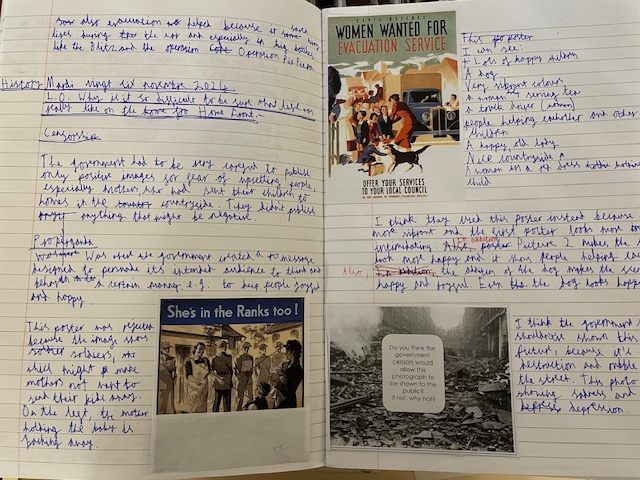 evacuation helped because it
lives during the war and especially in big battles
like the Blitz and the operation Operation Pie Pipe
History Mardi vingt six novembre 2024
L.O. Why is it so difficult to be sure what life was
really like on the Home Front.
Censorship
The government had to be very careful to publish
only positive images for fear of upsetting people,
especially mothers who had sent their children to
homes in the countryside. They didn't publish
anything that might be negative.
Propaganda
Was when the government created a message
designed to persuade its intended audience to think and
behave in a certain manner e.g. to keep people joyful
and happy.
This poster was rejected
because the image shows
soldiers, who
might make
mothers not want to
send their kids away
On the left, the mother
holding the baby is
looking away.
She's in the Ranks too!
CIVIL DEFENCE
WOMEN WANTED FOR
EVACUATION SERVICE
OFFER YOUR SERVICES
TO YOUR LOCAL COUNCIL
This poster
I can see:
Lots of happy children
A dog
Very vibrant colours
A woman serving tea
people helping eachother and other
children
A happy old lady
Nice countryside
A woman in a red dress
child
I think they used this poster instead because
more vibrant and the first poster looks more
intimidating. Picture 2 makes the
look more happy and it shows people helping
Also, the addition of the dog makes the
happy and joyful. Even tho the dog looks happy
Do you think the
government
censors would
allow this
photograph to
be shown to the
public?
If not, why not?
I think the government
shouldn't shown this
picture because it's
destruction and rubble
the street. This photo
showing sadness and
depression.